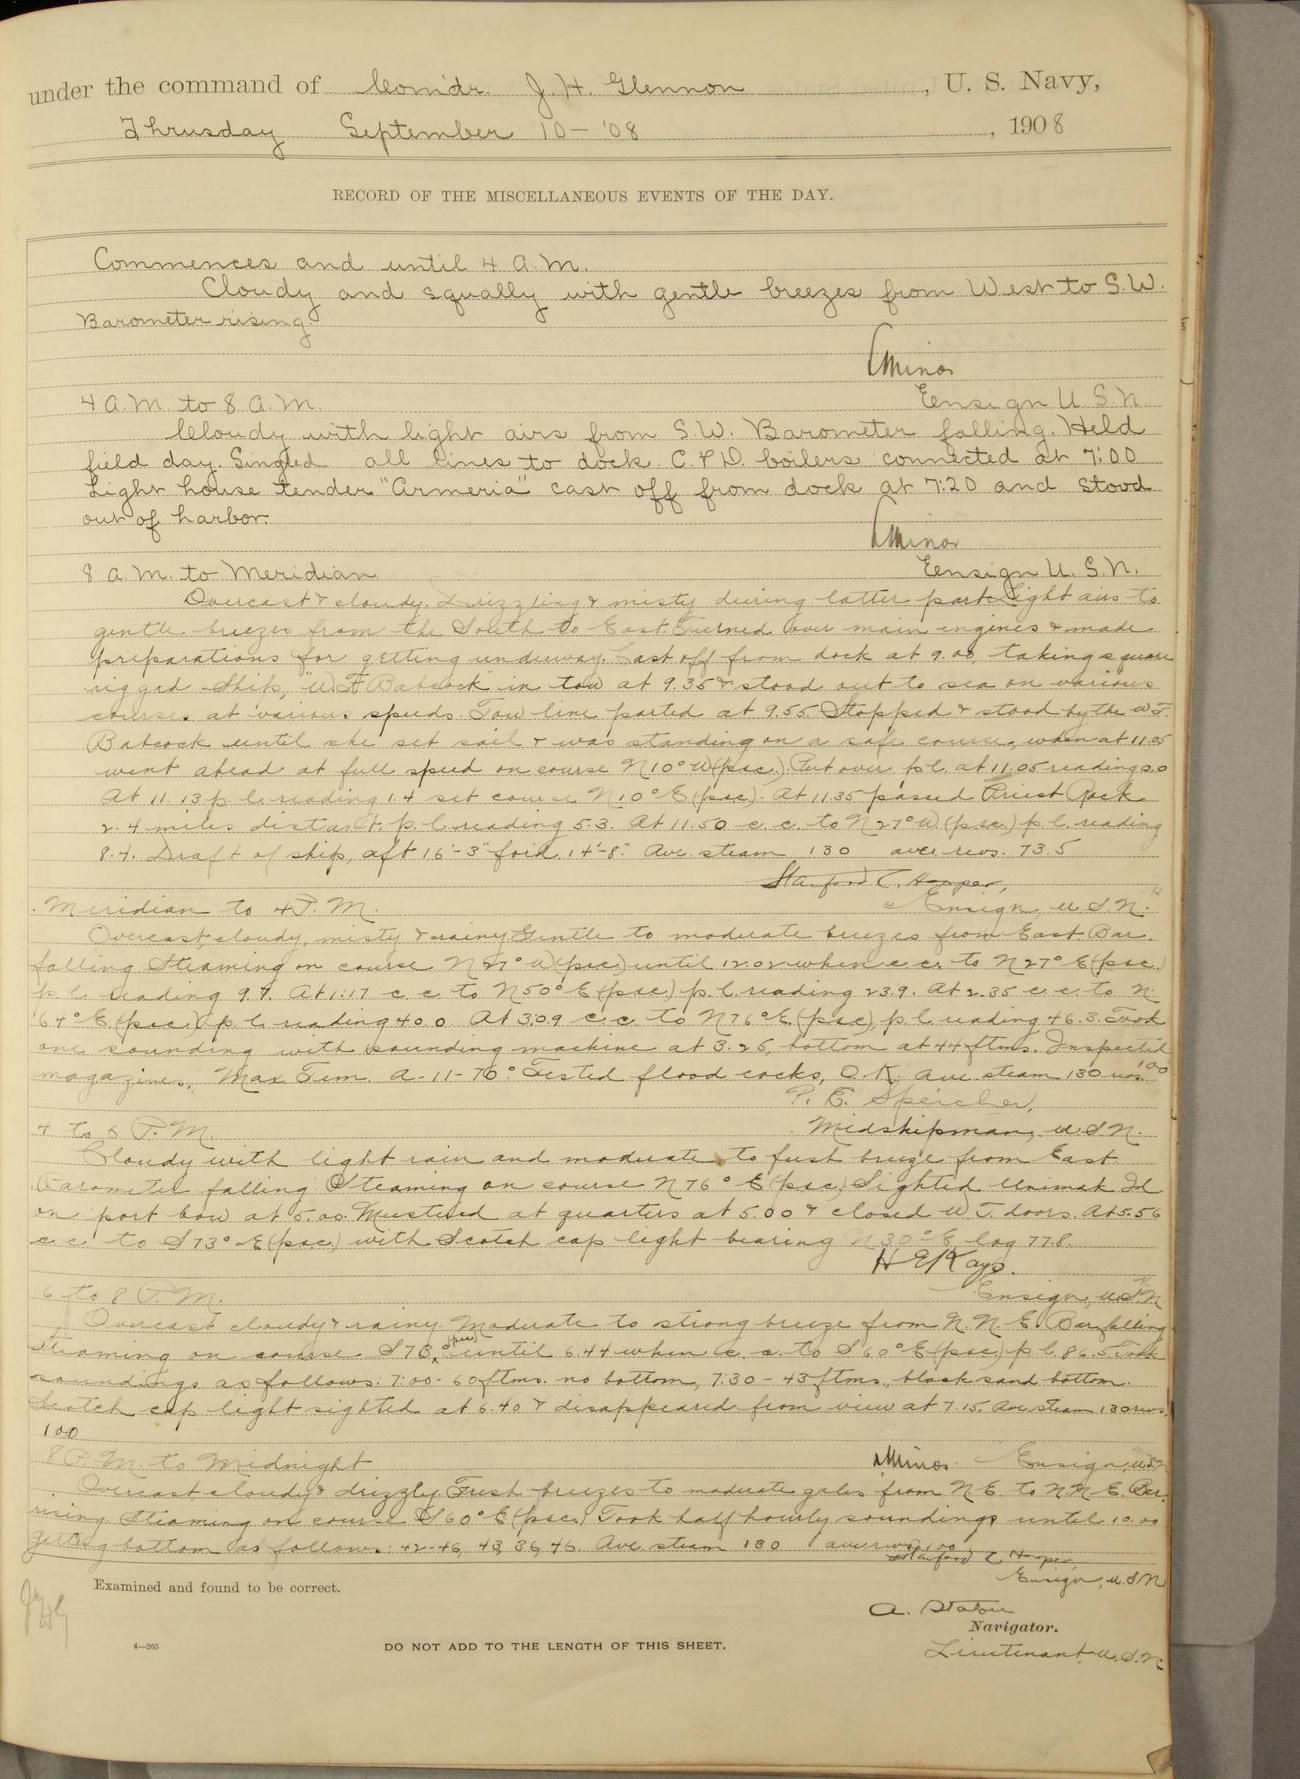 under the command of Com'dr. J. H. Glennon, U. S. Navy,
Thrusday September 10 - '08, 1908
RECORD OF THE MISCELLANEOUS EVENTS OF THE DAY.
Commences and until 4 A.M.
Cloudy and squally with gentle breezes from West to S.W.
Barometer rising.
Minor
4 A.M. to 8 A.M. Ensign U.S.N.
Cloudy with light airs from S.W. Barometer falling. Held
field day. Singled all lines to dock. C. & D. boilers connected at 7:00
Light house tender "Armeria" cast off from dock at 7:20 and stood
out of harbor.
Minor
8 A.M. to Meridian Ensign U.S.N.
Overcast & cloudy. Drizzling & misty during latter part. Light airs to
gentle breezes from the South to East. Turned over main engines & made
preparations for getting underway. Cast off from dock at 9.00, taking square
rigged ship, "W.F. Babcock" in tow at 9.35 & stood out to sea on various
courses at various speeds. Tow line parted at 9.55. Stopped & stood by the W.F.
Babcock until she set sail & was standing on a safe course, when at 11.05
went ahead at full speed on course N10°W(psc.). Put over p.l. at 11.05 reading 0.0
At 11.13 p.l. reading 1.4 set course N10°E(psc). At 11.35 passed Priest Rock
2.4 miles distant, p.l. reading 5.3. At 11.50 c.c. to N27°W.(psc.) p.l. reading
8.4. Draft of ship, aft 16'-3" for'd. 14'-8". Ave. steam 130 ave. revs. 73.5
Stanford C. Hooper,
Meridian to 4 P.M. Ensign, U.S.N.
Overcast, cloudy, misty & rainy. Gentle to moderate breezes from East. Bar.
falling. Steaming on course N27°W(psc.) until 12.02 when c.c. to N27°E(psc.)
p.l. reading 9.7. At 1.17 c.c. to N50°E(psc.) p.l. reading 23.9. At 2.35 c.c. to N.
64°E.(psc.) p.l. reading 40.0. At 3.09 c.c. to N76°E.(psc), p.l. reading 46.3. Took
one sounding with sounding machine at 3.25, bottom at 44 ftms. Inspected
magazines. Max. Tem. A-11-70°. Tested flood cocks, O.K. Ave. steam 130 revs. 100
P. E. Speicher,
4 to 6 P.M. Midshipman, U.S.N.
Cloudy with light rain and moderate to fresh breeze from East
Barometer falling. Steaming on course N76°E(psc.) Sighted Unimak Id
on port bow at 5.00. Mustered at quarters at 5.00 & closed W.T. doors. At 5.56
c.c. to S73°E(psc.) with Scotch cap light bearing N30°E, log 77.8.
H E Kays.
6 to 8 P.M. Ensign, U.S.N.
Overcast cloudy & rainy. Moderate to strong breeze from N.N.E. Bar falling
Steaming on course S73° (psc) until 6.44 when c.c. to S60°E(psc.) p.l. 86.5 Took
soundings as follows: 7:00 - 60 ftms. no bottom, 7:30 - 43 ftms., black sand bottom.
Scotch cap light sighted at 6.40 & disappeared from view at 7.15. Ave steam 130 revs.
100
8 P.M. to Midnight Minor Ensign, U.S.N
Overcast, cloudy & drizzly. Fresh breezes to moderate gales from N.E. to N.N.E. Bar.
rising. Steaming on course S60°E(psc.) Took half hourly soundings until 10.00
getting bottom as follows: 42-46, 43, 36, 46. Ave. steam 130 ave revs 100
Stanford C Hooper,
Ensign, U.S.N
Examined and found to be correct.
A. Staton
Navigator.
Lieutenant U.S.N.
4—265
DO NOT ADD TO THE LENGTH OF THIS SHEET.